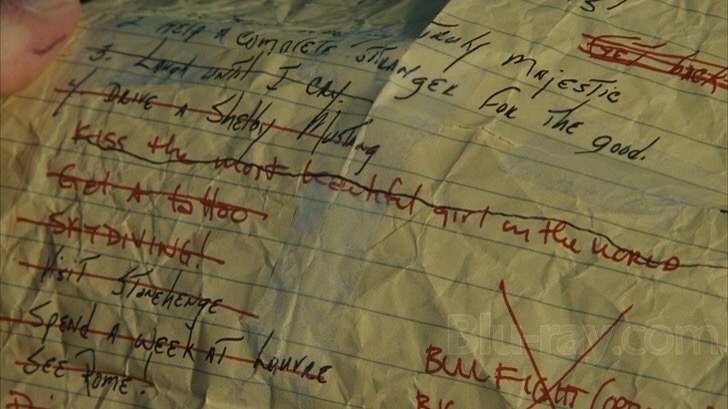 truly majestic
2. Help a complete stranger for the good.
3. Laugh until I cry.
4) Drive a Shelby Mustang
Kiss the most beautiful girl in the WORLD
Get a tattoo
SKYDIVING!
Visit Stonehenge
SPEND A WEEK AT Louvre
SEE ROME!
BULL FIGHT
Blu-ray.com